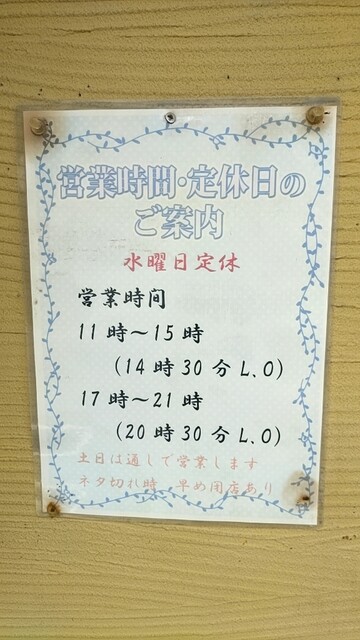 営業時間・定休日の
ご案内
水曜日定休
営業時間
11時～15時
(14時30分L.O)
17時～21時
(20時30分L.O)
土日は通しで営業します
ネタ切れ時 早め閉店あり